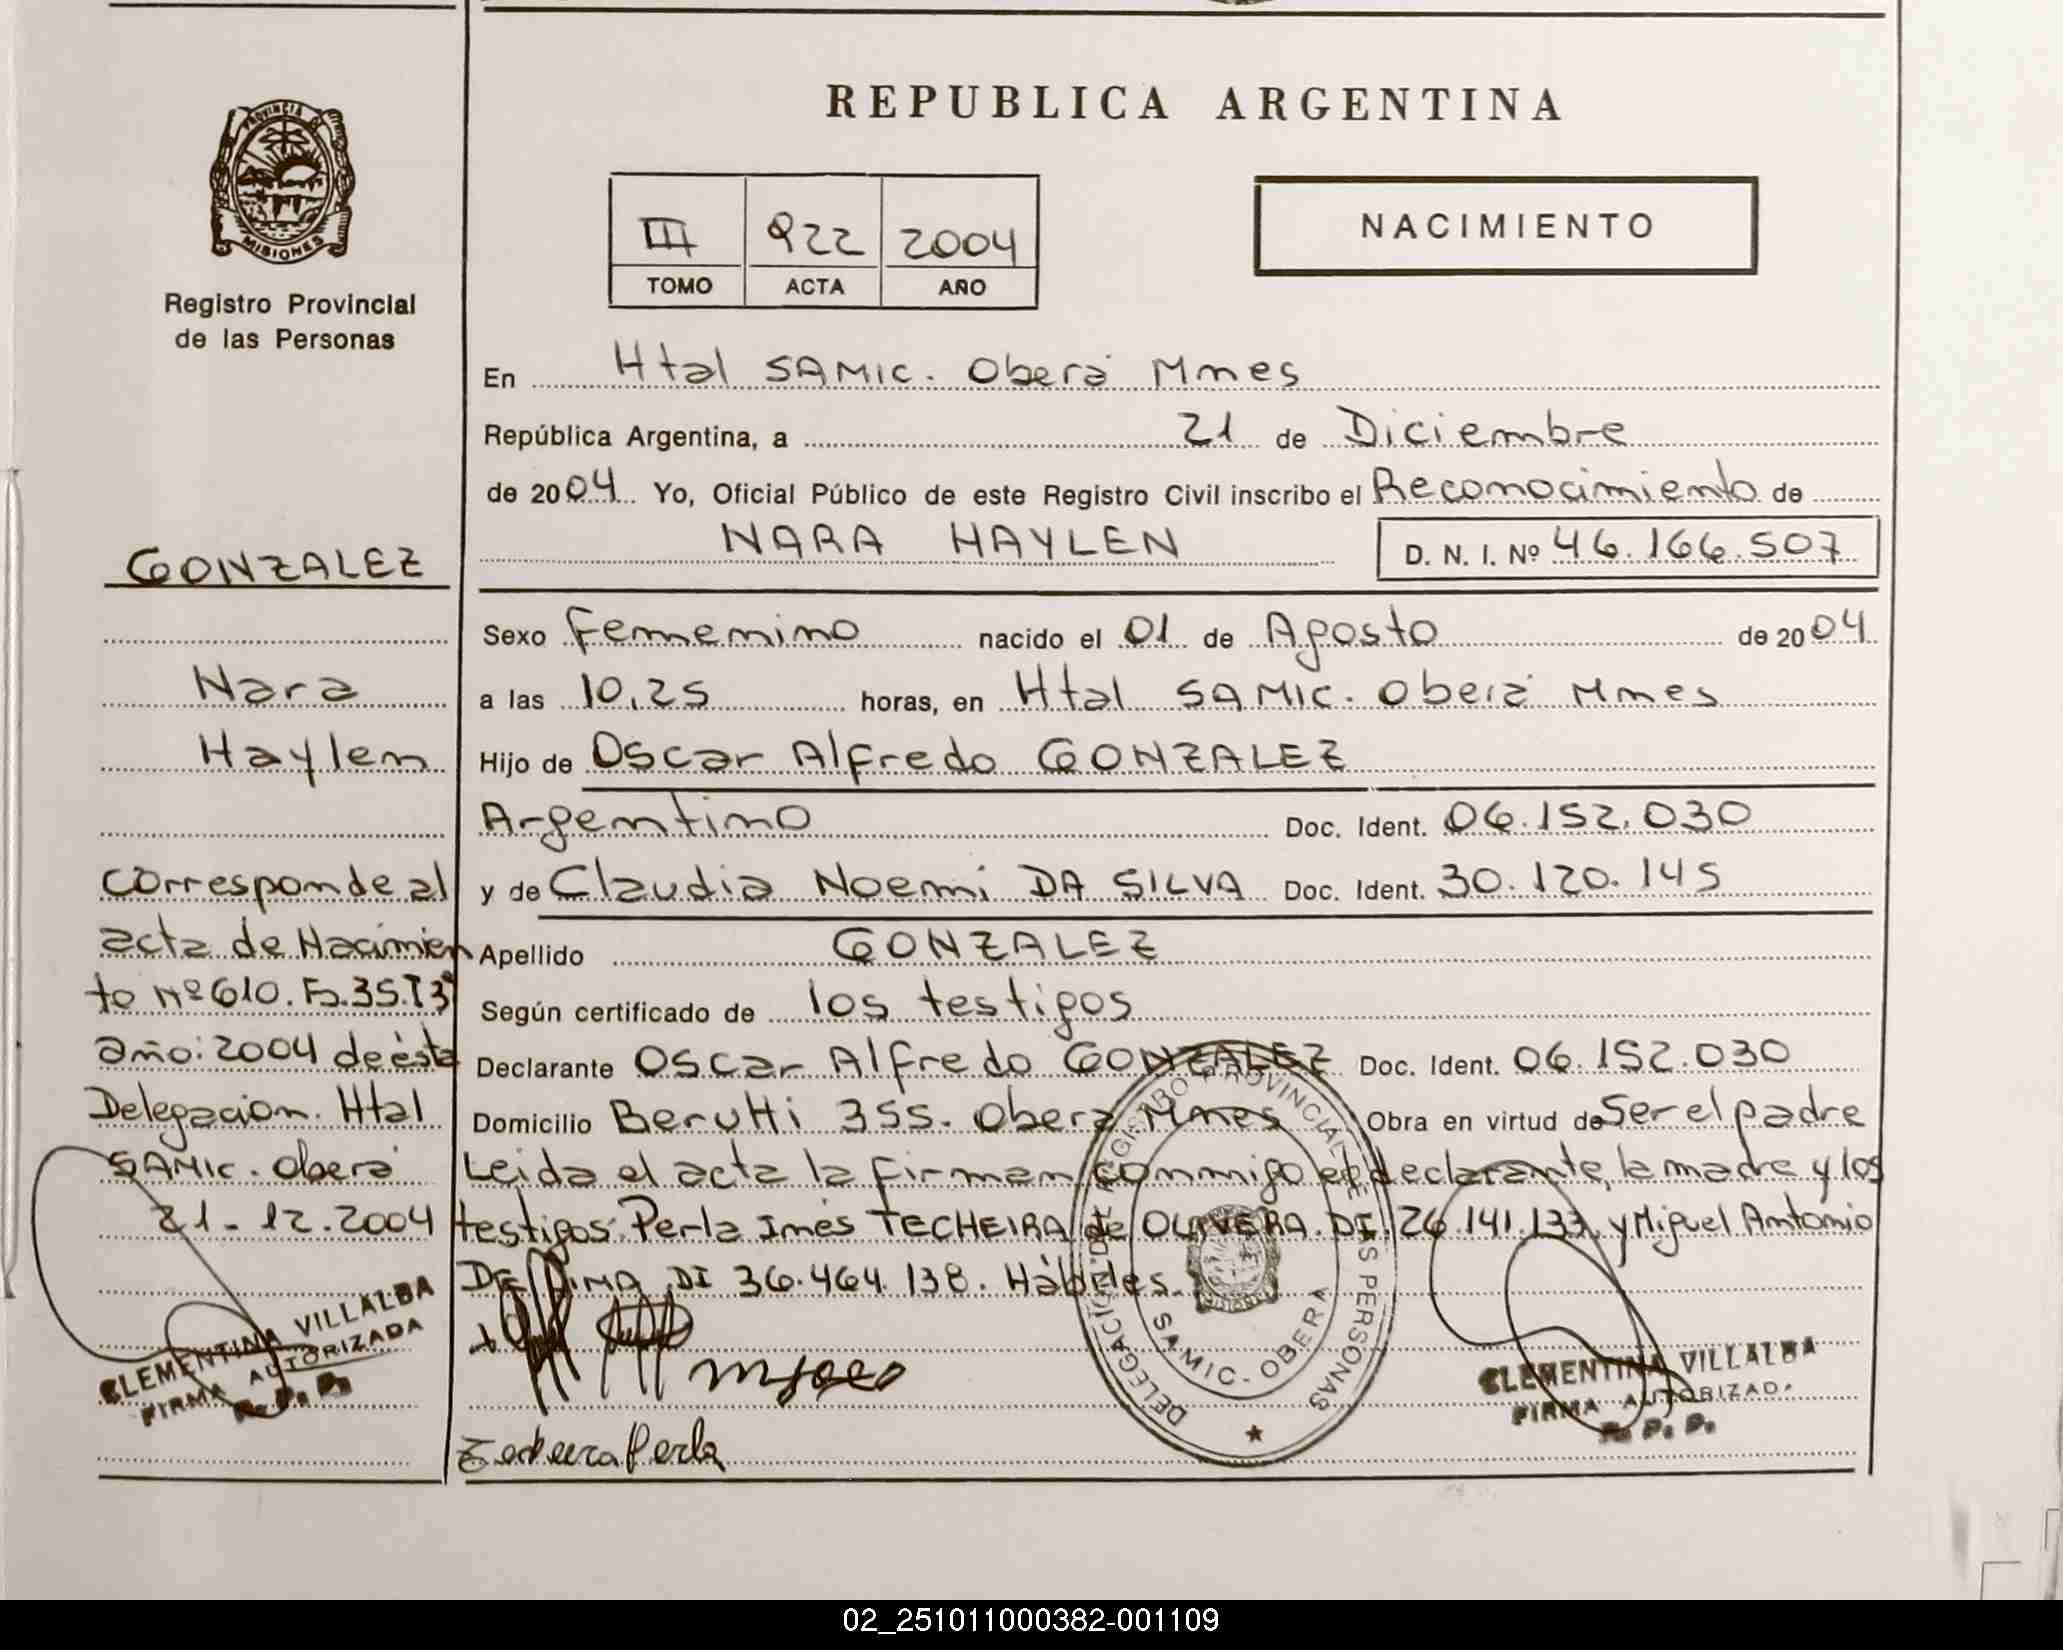 REPUBLICA ARGENTINA
PROVINCIA DE
MISIONES
Registro Provincial
de las Personas
III 922 2004
TOMO ACTA AÑO
NACIMIENTO
En Htal SAMIC. Oberá Mnes
República Argentina, a 21 de Diciembre
de 2004 Yo, Oficial Público de este Registro Civil inscribo el Reconocimiento de
NARA HAYLEN D. N. I. Nº 46.166.507
Sexo Femenino nacido el 01 de Agosto de 2004
a las 10,25 horas, en Htal SAMIC. Oberá Mnes
Hijo de Oscar Alfredo GONZALEZ
Argentino Doc. Ident. 06.152.030
y de Claudia Noemi DA SILVA Doc. Ident. 30.120.145
Apellido GONZALEZ
Según certificado de los testigos
Declarante Oscar Alfredo GONZALEZ Doc. Ident. 06.152.030
Domicilio Berutti 355. Oberá Mnes Obra en virtud de Ser el padre
Leida el acta la firman conmigo el declarante, la madre y los
testigos: Perla Inés TECHEIRA de OLIVERA. DI. 26.141.137 y Miguel Antonio
DE LIMA DI 36.464.138. Hábiles.
Techeira Perla
DELEGACION DE REGISTRO PROVINCIAL DE LAS PERSONAS
SAMIC - OBERA
CLEMENTINA VILLALBA
FIRMA AUTORIZADA
R. P. P.
GONZALEZ
Nara
Haylen
Corresponde al
acta de Nacimien
to nº 610. Fº.35.T3º
año: 2004 de ésta
Delegacion. Htal
SAMIC. Oberá
21-12.2004
CLEMENTINA VILLALBA
FIRMA AUTORIZADA
R. P. P.
02_251011000382-001109